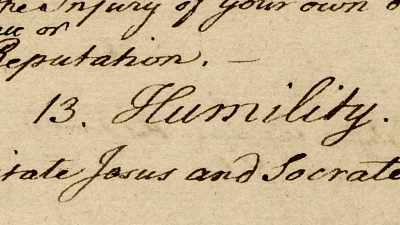 the Injury of your own o
or
Reputation. —
13. Humility.
itate Jesus and Socrate